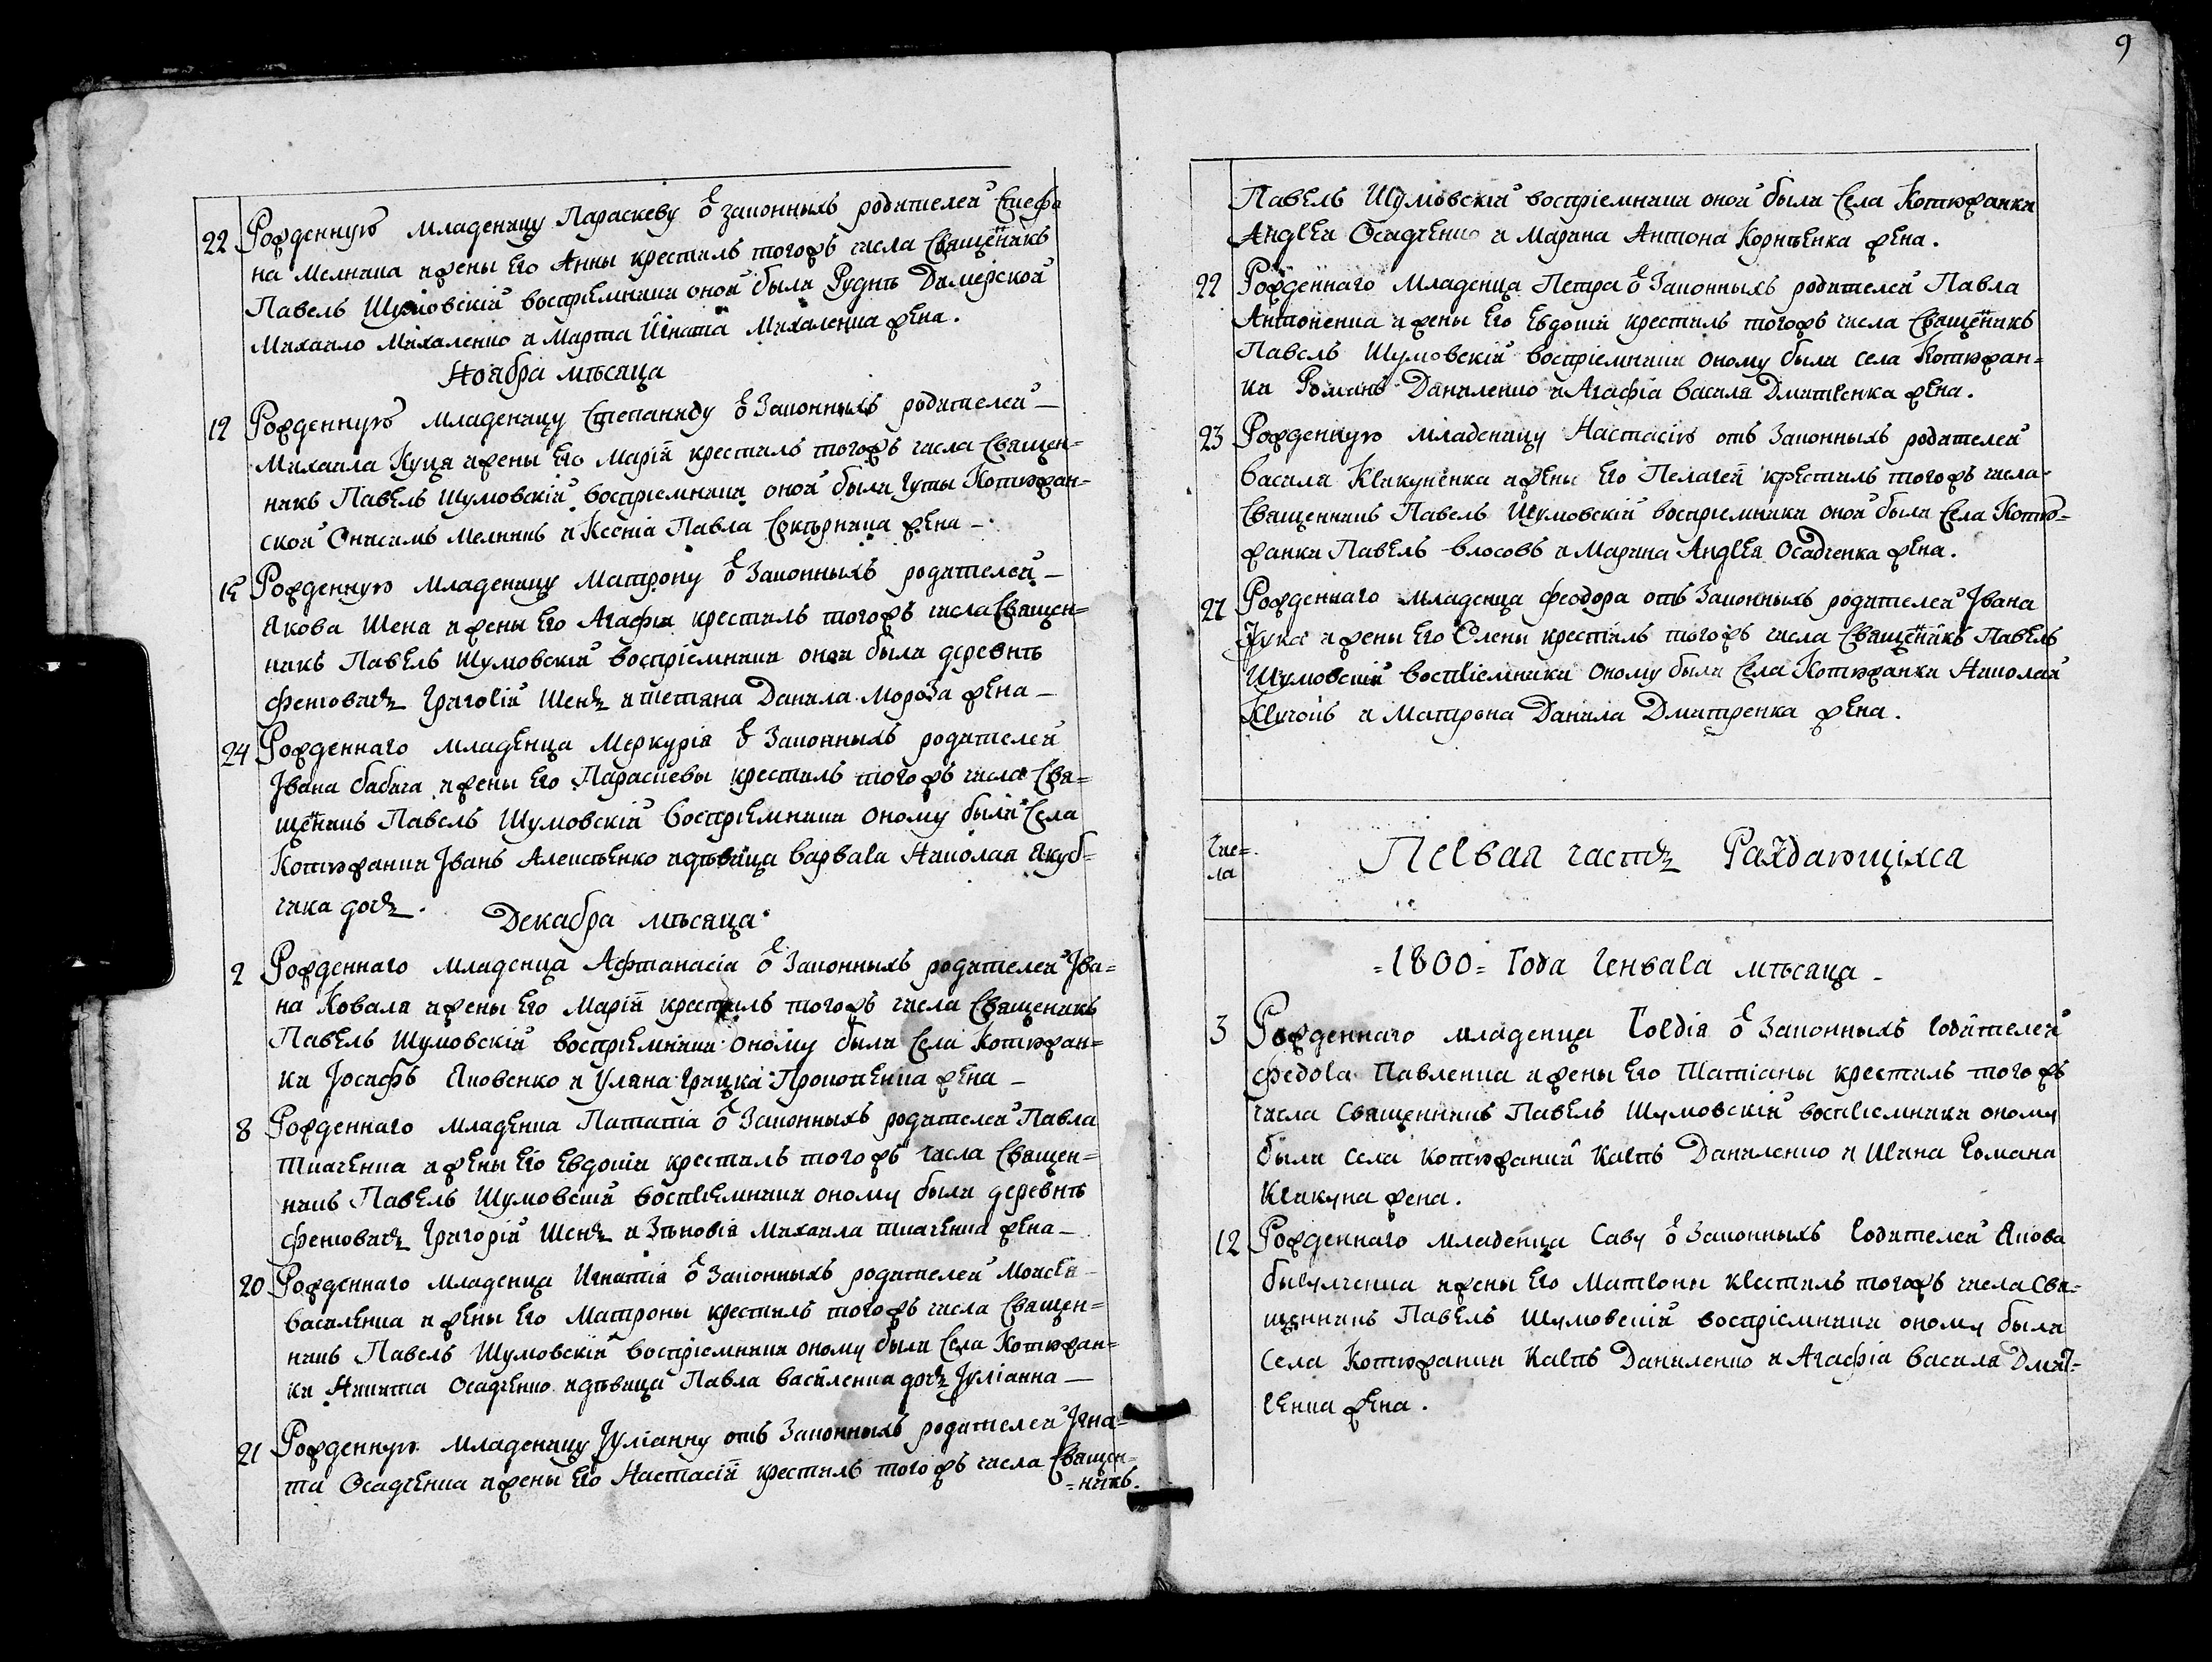 9
22 Рожденную младеницу Параскеву ѿ законныхъ родителей Стефа
на Мелника и жены Его Анны крестилъ тогожъ числа Священикъ
Павелъ Шумовскій воспріемники оной были Рудни Димерской
Михайло Михаленко и Марта Игната Михаленка жена.
Ноября мѣсяца
12 Рожденную младеницу Степаниду ѿ Законныхъ родителей –
Михаила Куця и жены Его Маріи крестилъ тогожъ числа Священ=
никъ Павелъ Шумовскій воспріемники оной были гуты Котюжан=
ской Онисимъ Мелникъ и Ксенія Павла жена –
15 Рожденную младеницу Матрону ѿ Законныхъ родителей –
Якова Шена и жены Его Агафіи крестилъ тогожъ числа Священ=
никъ Павелъ Шумовскій воспріемники оной были деревнѣ
Феневичъ Григорій Шень и Тетяна Данила Мороза жена –
24 Рожденнаго младенца Меркурія ѿ Законныхъ родителей
Івана бабича и жены Его Параскевы крестилъ тогожъ числа Свя=
щеникъ Павелъ Шумовскій воспріемники оному были Села
Котюжанки Іванъ Алексѣенко и дѣвица варвара Николая Якуб=
чика дочь.
Декабра мѣсяца
2 Рожденнаго младенца Афтанасія ѿ Законныхъ родителей Іва=
на Коваля и жены Его Маріи крестилъ тогожъ числа Священикъ
Павелъ Шумовскій воспріемники оному были Села Котюжан=
ки Іосифъ Яковенко и Уляна Грицка Прокопенка жена –
8 Рожденнаго младенца Патапія ѿ Законныхъ родителей Павла
Ткаченка и жены Его Евдокіи крестилъ тогожъ числа Священ=
никъ Павелъ Шумовскій воспріемники оному были деревнѣ
Феневичъ Григорій Шень и Зѣновія Михаила ткаченка жена –
20 Рожденнаго младенца Игнатія ѿ Законныхъ родителей Моисея
василенка и жены Его Матроны крестилъ тогожъ числа Священ=
никъ Павелъ Шумовскій воспріемники оному были Села Котюжан=
ки Никита Осадченко и дѣвица Павла василенка дочь Іуліанна –
21 Рожденную младеницу Іуліанну отъ Законныхъ родителей Ігна=
та Осадченка и жены Его Настасіи крестилъ тогожъ числа Священ=
=никъ.
Павелъ Шумовскій воспріемники оной были Села Котюжанки
Андрей Осадченко и Марина Антона Корнѣенка жена.
22 Рожденнаго младенца Петра ѿ Законныхъ родителей Павла
Антоненка и жены Его Евдокіи крестилъ тогожъ числа Священикъ
Павелъ Шумовскій воспріемники оному были села Котюжан=
ки Романъ Даниленко и Агафіа василя Дмитренка жена.
23 Рожденную младеницу Настасію отъ Законныхъ родителей
василя Крикуненка и жены Его Пелагеи крестилъ тогожъ числа
Священникъ Павелъ Шумовскій воспріемники оной были Села Котю=
жанки Павелъ власовъ и Марина Андрея Осадченка жена.
27 Рожденнаго младенца феодора отъ Законныхъ родителей Івана
и жены Его Олены крестилъ тогожъ числа Священикъ Павелъ
Шумовскій воспріемники оному были Села Котюжанки Николай
и Матрона Данила Дмитренка жена.
Чис=
ла
Первая часть Раждающіхся
=1800= Года Генвара мѣсяца –
3 Рожденнаго младенца Гордія ѿ Законныхъ родителей
Федора Павленка и жены Его Татіаны крестилъ тогожъ
числа Священникъ Павелъ Шумовскій воспріемники оному
были Села Котюжанки Карпъ Даниленко и Ирина Романа
Крикуна жена.
12 Рожденнаго младенца Саву ѿ Законныхъ родителей Якова
и жены Его Матроны крестилъ тогожъ числа Свя=
щенникъ Павелъ Шумовскій воспріемники оному были
Села Котюжанки Карпъ Даниленко и Агафіа василя Дмит=
ренка жена.